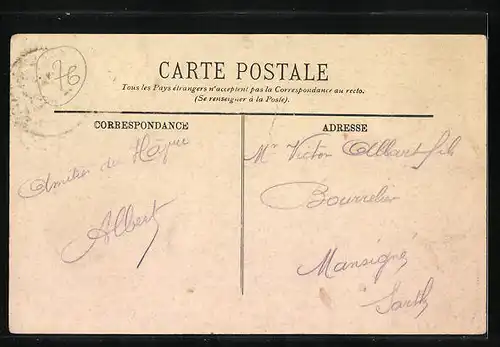 76
CARTE POSTALE
Tous les Pays étrangers n'acceptent pas la Correspondance au recto.
(Se renseigner à la Poste).
CORRESPONDANCE
ADRESSE
Amitiés du Hâvre
Albert
Mr Victor Allart fils
Bourrelier
Mansigné
Sarthe